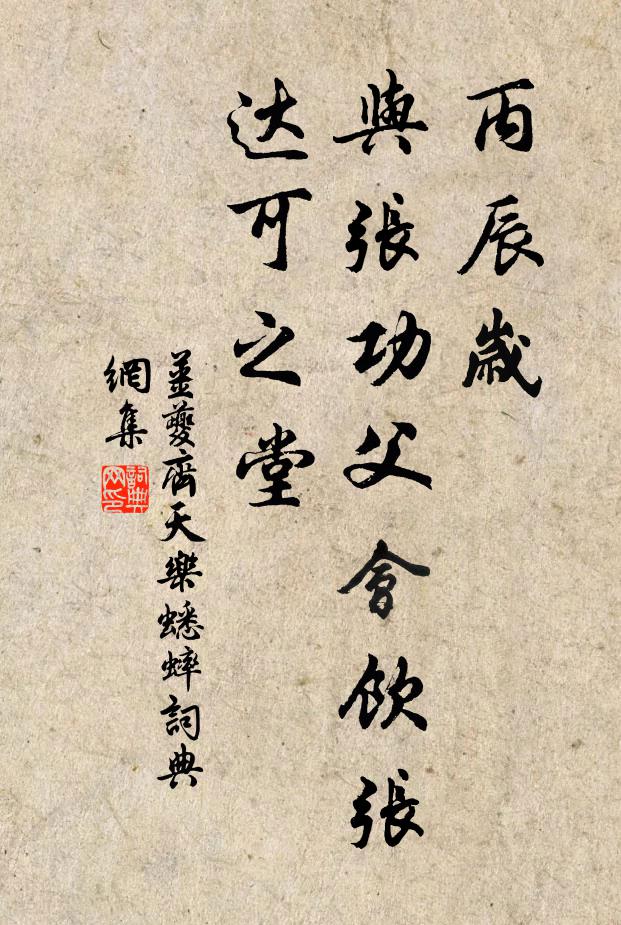 丙辰歲
與張功父會飲張
达可之堂
姜夔齊天樂蟋蟀詞典
網集
詞典
网印